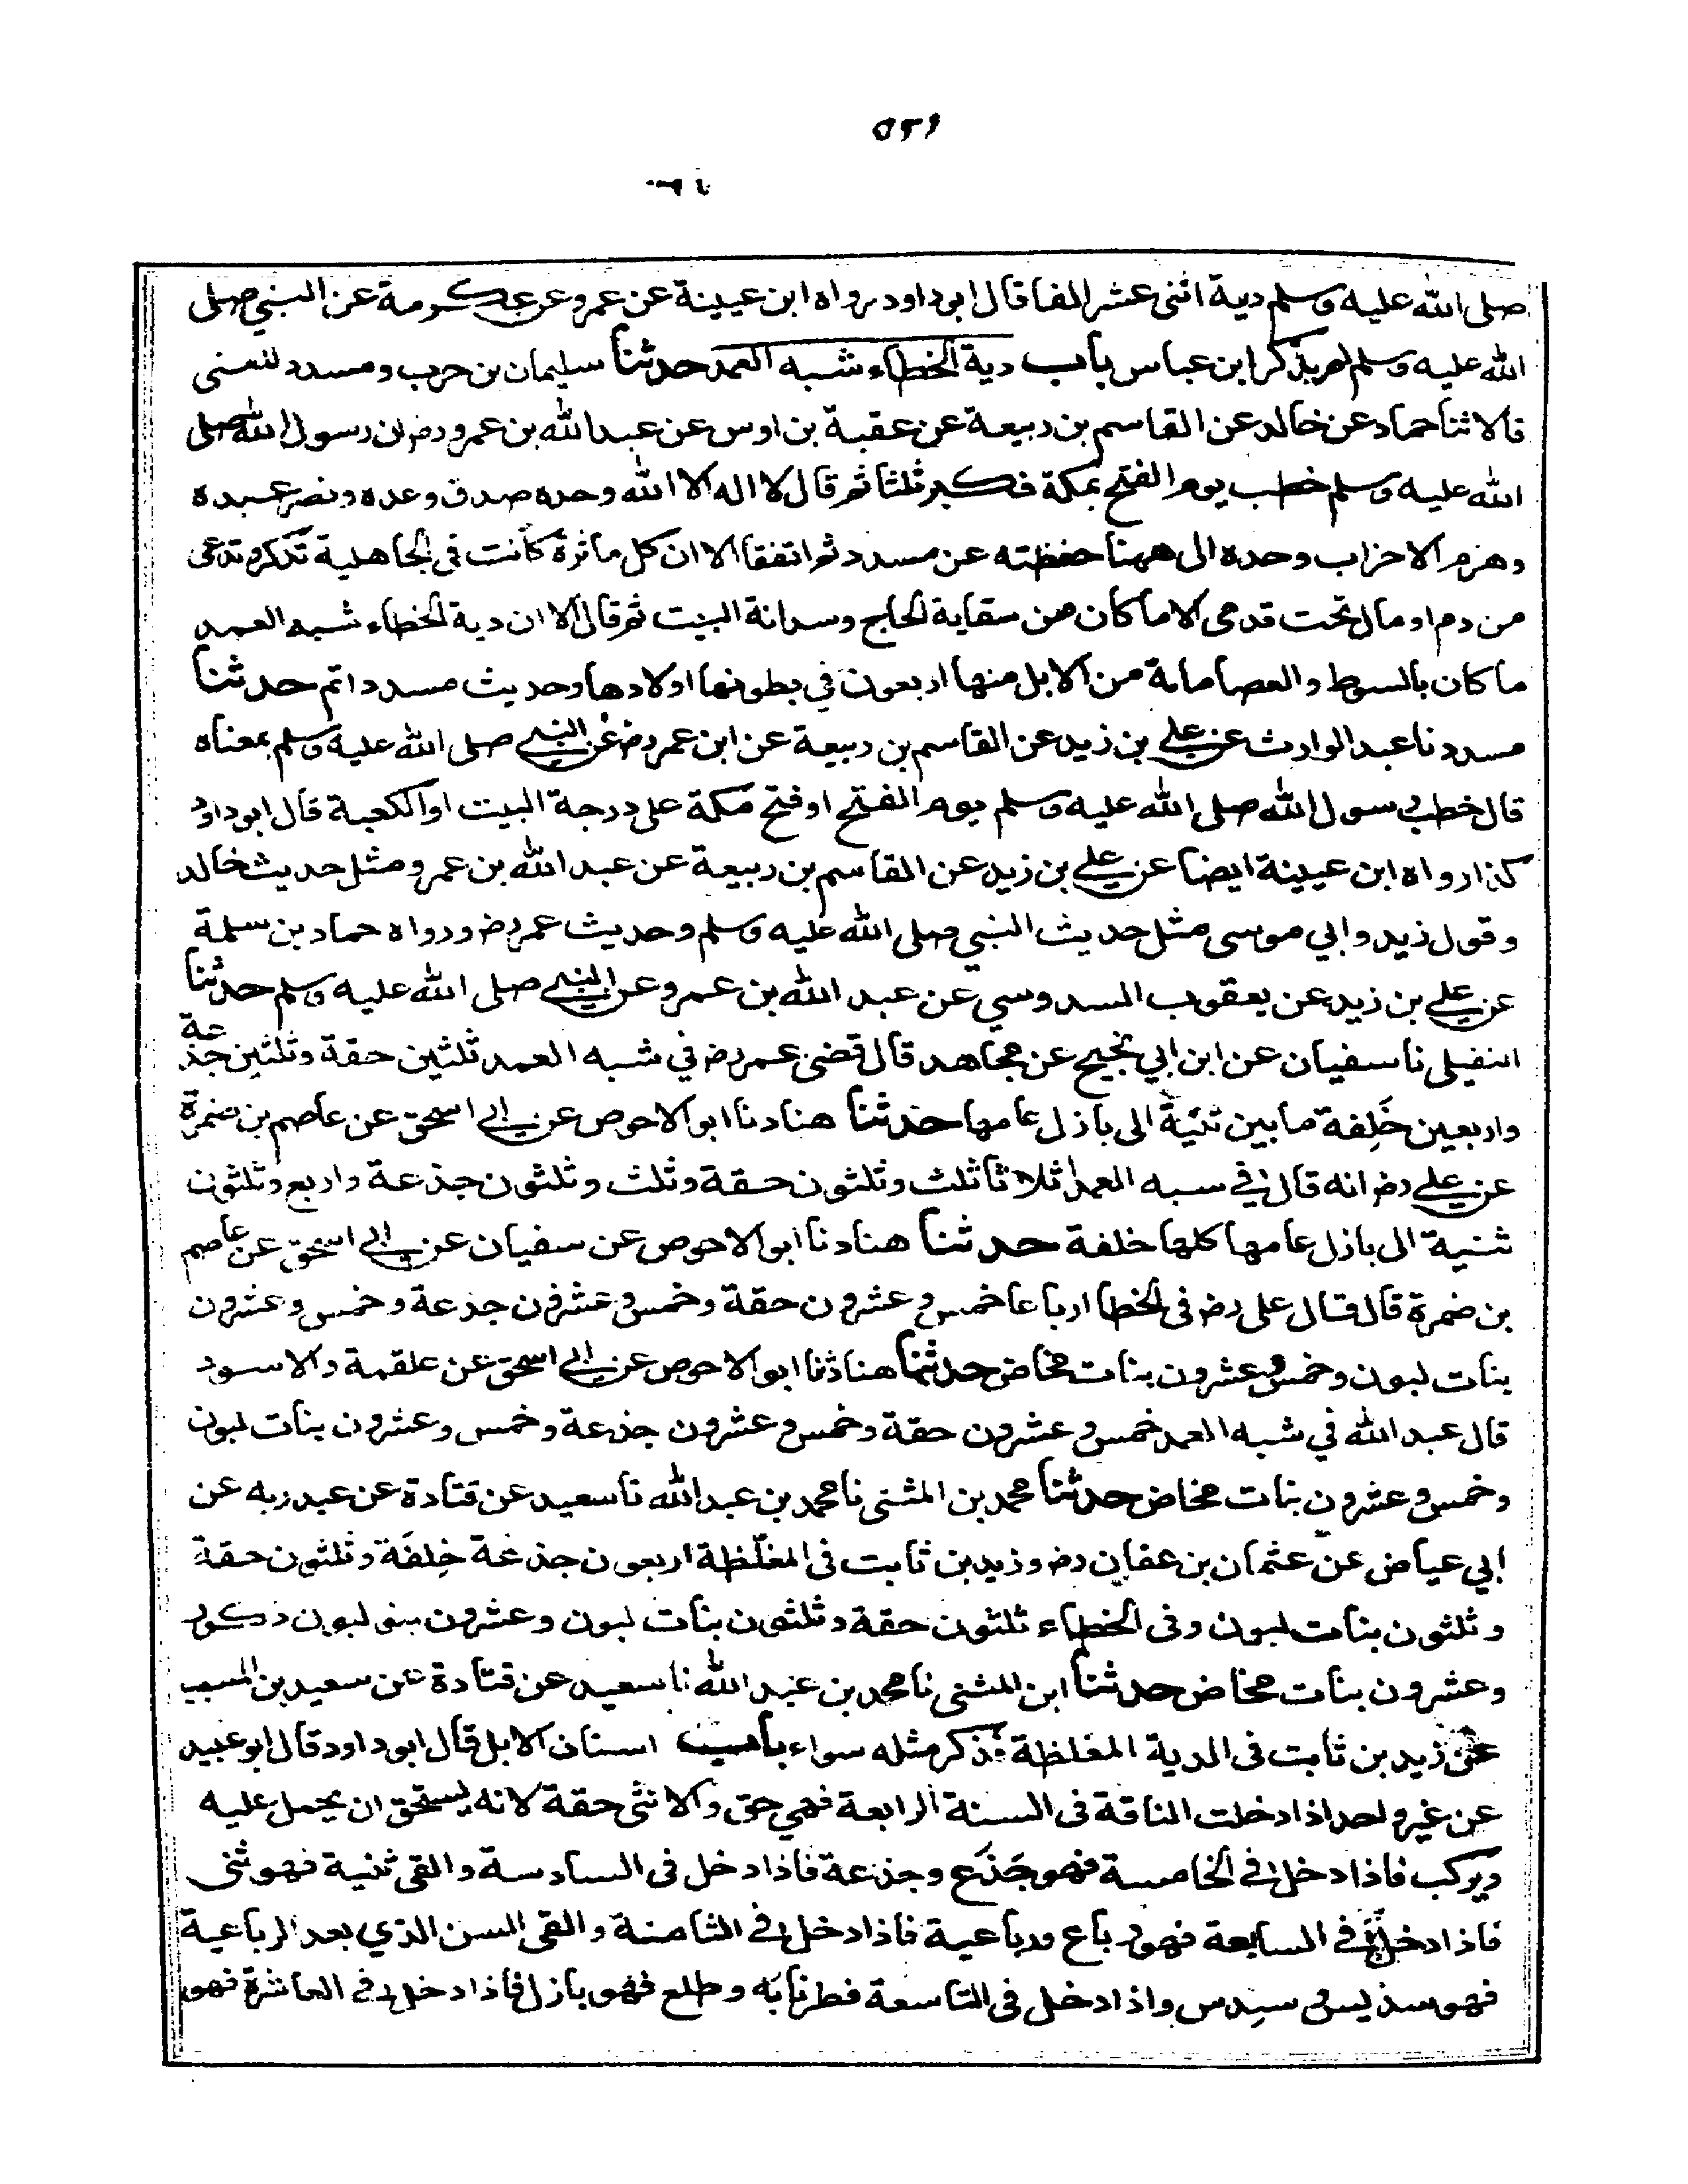 ٥٢٩
صلى الله عليه وسلم دية اثنى عشر الفا قال ابو داود رواه ابن عيينة عن عمرو عن عكرمة عن النبي صلى
الله عليه وسلم لم يذكر ابن عباس باب دية الخطاء شبه العمد حدثنا سليمان بن حرب ومسدد المعنى
قالا ثنا حماد عن خالد عن القاسم بن ربيعة عن عقبة بن اوس عن عبد الله بن عمرو رض ان رسول الله صلى
الله عليه وسلم خطب يوم الفتح بمكة فكبر ثلثا ثم قال لا اله الا الله وحده صدق وعده ونصر عبده
وهزم الاحزاب وحده الى ههنا حفظته عن مسدد ثم اتفقا الا ان كل ماثرة كانت في الجاهلية تذكر وتدعى
من دم او مال تحت قدمى الا ما كان من سقاية الحاج وسدانة البيت ثم قال الا ان دية الخطاء شبه العمد
ما كان بالسوط والعصا ماية من الابل منها اربعون في بطونها اولادها وحديث مسدد اتم حدثنا
مسدد نا عبد الوارث عن علي بن زيد عن القاسم بن ربيعة عن ابن عمر رض عن النبي صلى الله عليه وسلم بمعناه
قال خطب رسول الله صلى الله عليه وسلم يوم الفتح او فتح مكة على درجة البيت او الكعبة قال ابو داود
كذا رواه ابن عيينة ايضا عن علي بن زيد عن القاسم بن ربيعة عن عبد الله بن عمرو مثل حديث خالد
وقول زيد وابي موسى مثل حديث النبي صلى الله عليه وسلم وحديث عمر رض ورواه حماد بن سلمة
عن علي بن زيد عن يعقوب السدوسي عن عبد الله بن عمرو عن النبي صلى الله عليه وسلم حدثنا
النفيلى نا سفيان عن ابن ابي نجيح عن مجاهد قال قضى عمر رض في شبه العمد ثلثين حقة وثلثين جذعة
واربعين خَلِفة ما بين ثنيّة الى بازل عامها حدثنا هناد نا ابو الاحوص عن ابي اسحق عن عاصم بن ضمرة
عن علي رض انه قال في سبه العمد اثلاثا ثلث وثلثون حقة وثلث وثلثون جذعة واربع وثلثون
ثنية الى بازل عامها كلها خلفة حدثنا هناد نا ابو الاحوص عن سفيان عن ابي اسحق عن عاصم
بن ضمرة قال قال على رض فى الخطا ارباعا خمس وعشرون حقة وخمس وعشرون جذعة وخمس وعشرون
بنات لبون وخمس وعشرون بنات مخاض حدثنا هناد ثنا ابو الاحوص عن ابي اسحق عن علقمة والاسود
قال عبد الله في شبه العمد خمس وعشرون حقة وخمس وعشرون جذعة وخمس وعشرون بنات لبون
وخمس وعشرون بنات مخاض حدثنا محمد بن المثنى نا محمد بن عبد الله نا سعيد عن قتادة عن عبد ربه عن
ابي عياض عن عثمان بن عفان رض وزيد بن ثابت فى المغلّظة اربعون جذعة خِلفَة وثلثون حقة
وثلثون بنات لبون وفى الخطاء ثلثون حقة وثلثون بنات لبون وعشرون بنى لبون ذكور
وعشرون بنات مخاض حدثنا ابن المثنى نا محمد بن عبد الله نا سعيد عن قتادة عن سعيد بن المسيب
عن زيد بن ثابت فى الدية المغلظة فذكر مثله سواء باب اسنان الابل قال ابو داود قال ابو عبيد
عن غير واحد اذا دخلت الناقة فى السنة الرابعة فهي حق والانثى حقة لانه يستحق ان يحمل عليه
ويركب فاذا دخل في الخامسة فهو جَذَع وجذعة فاذا دخل فى السادسة والقى ثنية فهو ثنى
فاذا دخل في السابعة فهو رباع ورباعية فاذا دخل في الثامنة والقى السن الذي بعد الرباعية
فهو سديس وسِدس واذا دخل فى التاسعة فطر نابَه وطلع فهو بازل فاذا دخل في العاشرة فهو